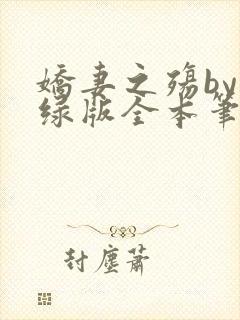 娇妻之殇by
绿版全本笔
封尘萧